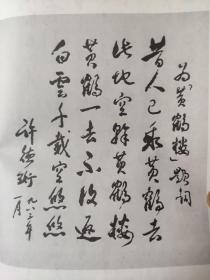 为「黄鹤楼」题词
昔人已乘黄鹤去
此地空馀黄鹤楼
黄鹤一去不復返
白雲千载空悠悠
许德珩
一九八三年
一月